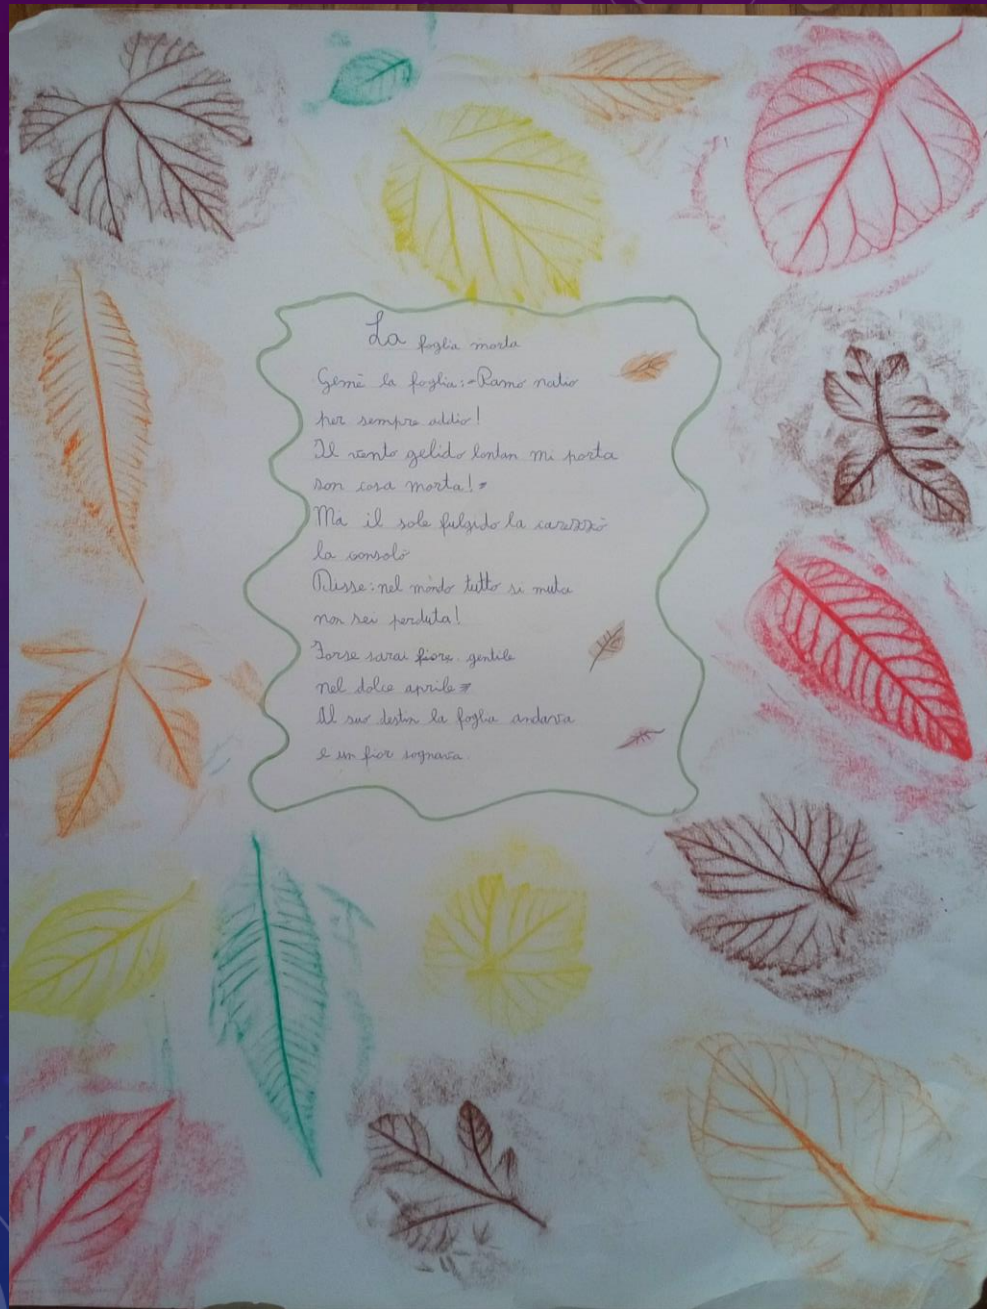 La foglia morta
Gemè la foglia:-Ramo natio
per sempre addio!
Il vento gelido lontan mi porta
son cosa morta!"
Ma il sole fulgido la carezzò
la consolò
Disse: nel mòndo tutto si muta
non sei perduta!
Forse sarai fiore gentile
nel dolce aprile"
Al suo destin la foglia andava
e un fior sognava.